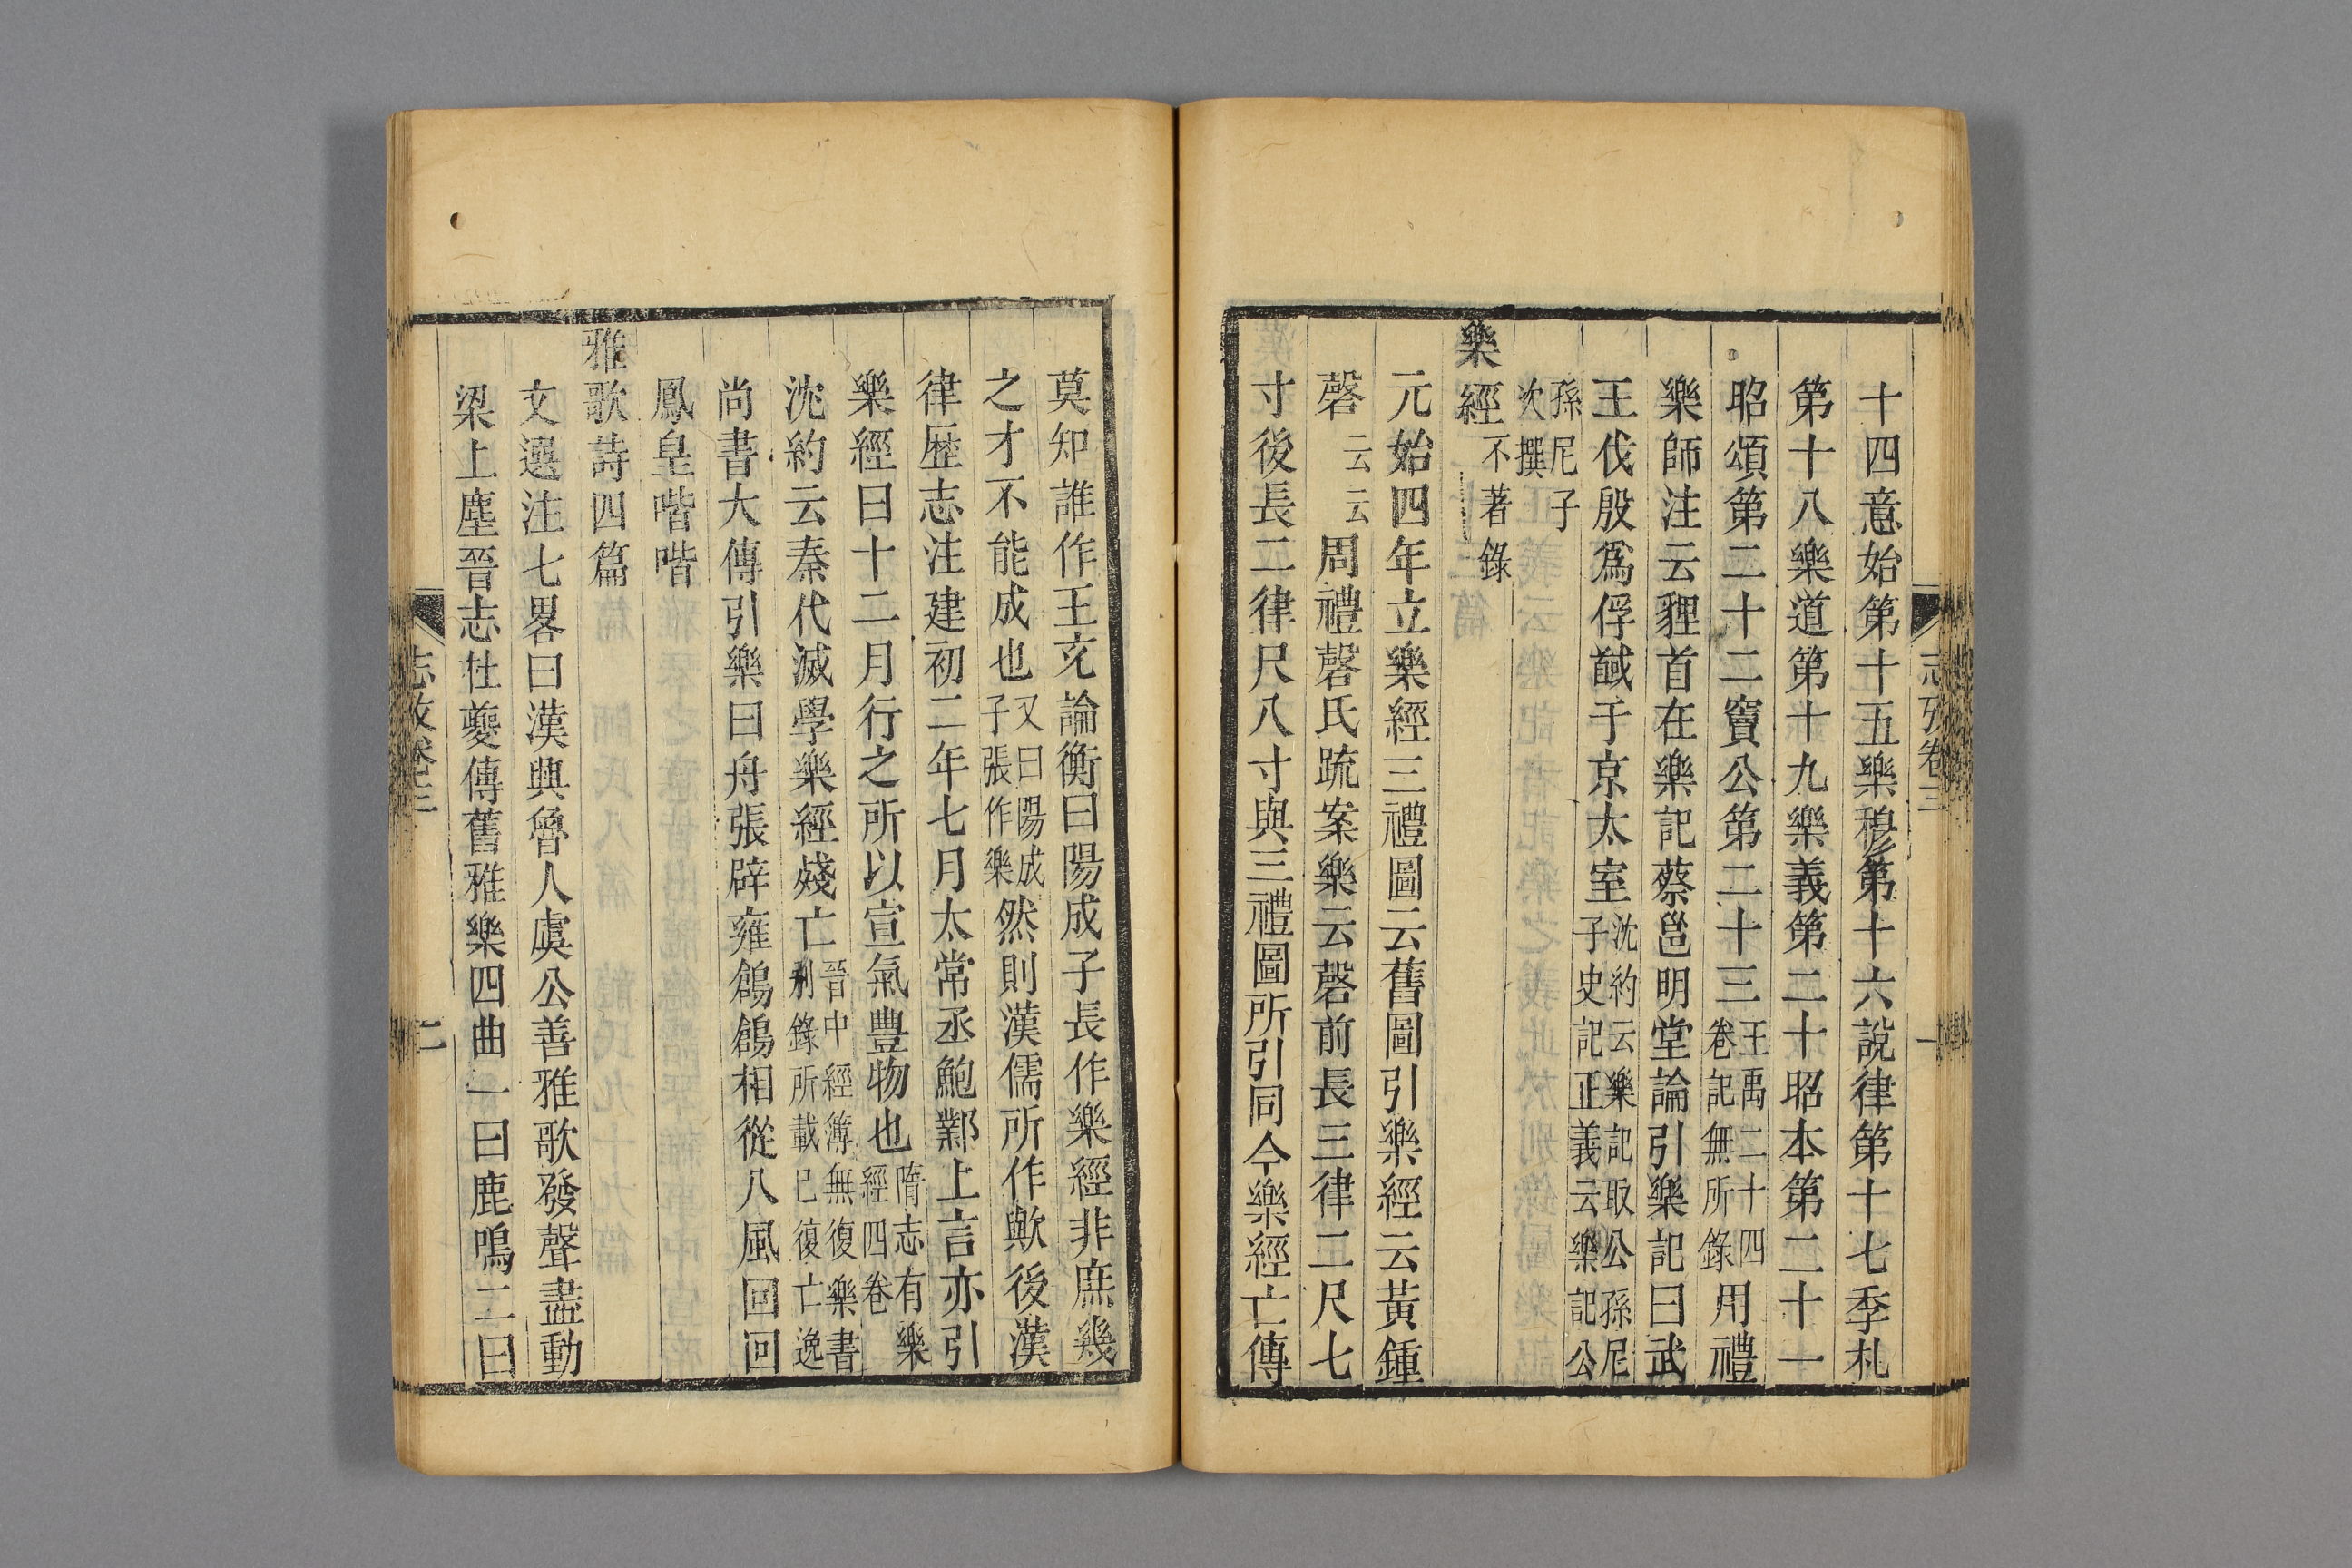 志攷卷三
一
十四意始第十五樂穆第十六說律第十七季札
第十八樂道第十九樂義第二十昭本第二十一
昭頌第二十二竇公第二十三王禹二十四卷記無所錄用禮
樂師注云貍首在樂記蔡邕明堂論引樂記曰武
王伐殷爲俘馘于京太室沈約云樂記取公孫尼子史記正義云樂記公
孫尼子次撰
樂經不著錄
元始四年立樂經三禮圖云舊圖引樂經云黃鍾
磬云云周禮磬氏䟽案樂云磬前長三律二尺七
寸後長二律尺八寸與三禮圖所引同今樂經亡傳
莫知誰作王充論衡曰陽成子長作樂經非庶幾
之才不能成也又曰陽成子張作樂然則漢儒所作歟後漢
律歷志注建初二年七月太常丞鮑鄴上言亦引
樂經曰十二月行之所以宣氣豐物也隋志有樂經四卷
沈約云秦代滅學樂經殘亡晉中經簿無復樂書別錄所載已復亡逸
尚書大傳引樂曰舟張辟雍鶬鶬相從八風回回
鳳皇喈喈
雅歌詩四篇
文選注七畧曰漢興魯人虞公善雅歌發聲盡動
梁上塵晉志杜夔傳舊雅樂四曲一曰鹿鳴二曰
志攷卷三
二